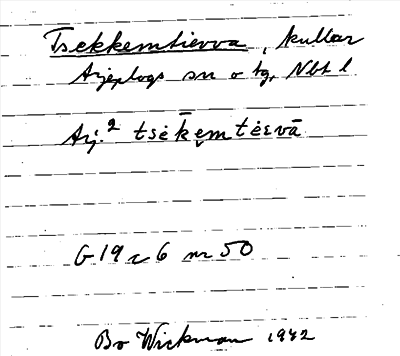 Tsekkemtievva, kullar
Arjeplogs sn o tg, Nbt l
Arj.² tsėk̄ęmtėɛvā
G 19 a 6 nr 50
Bo Wickman 1942